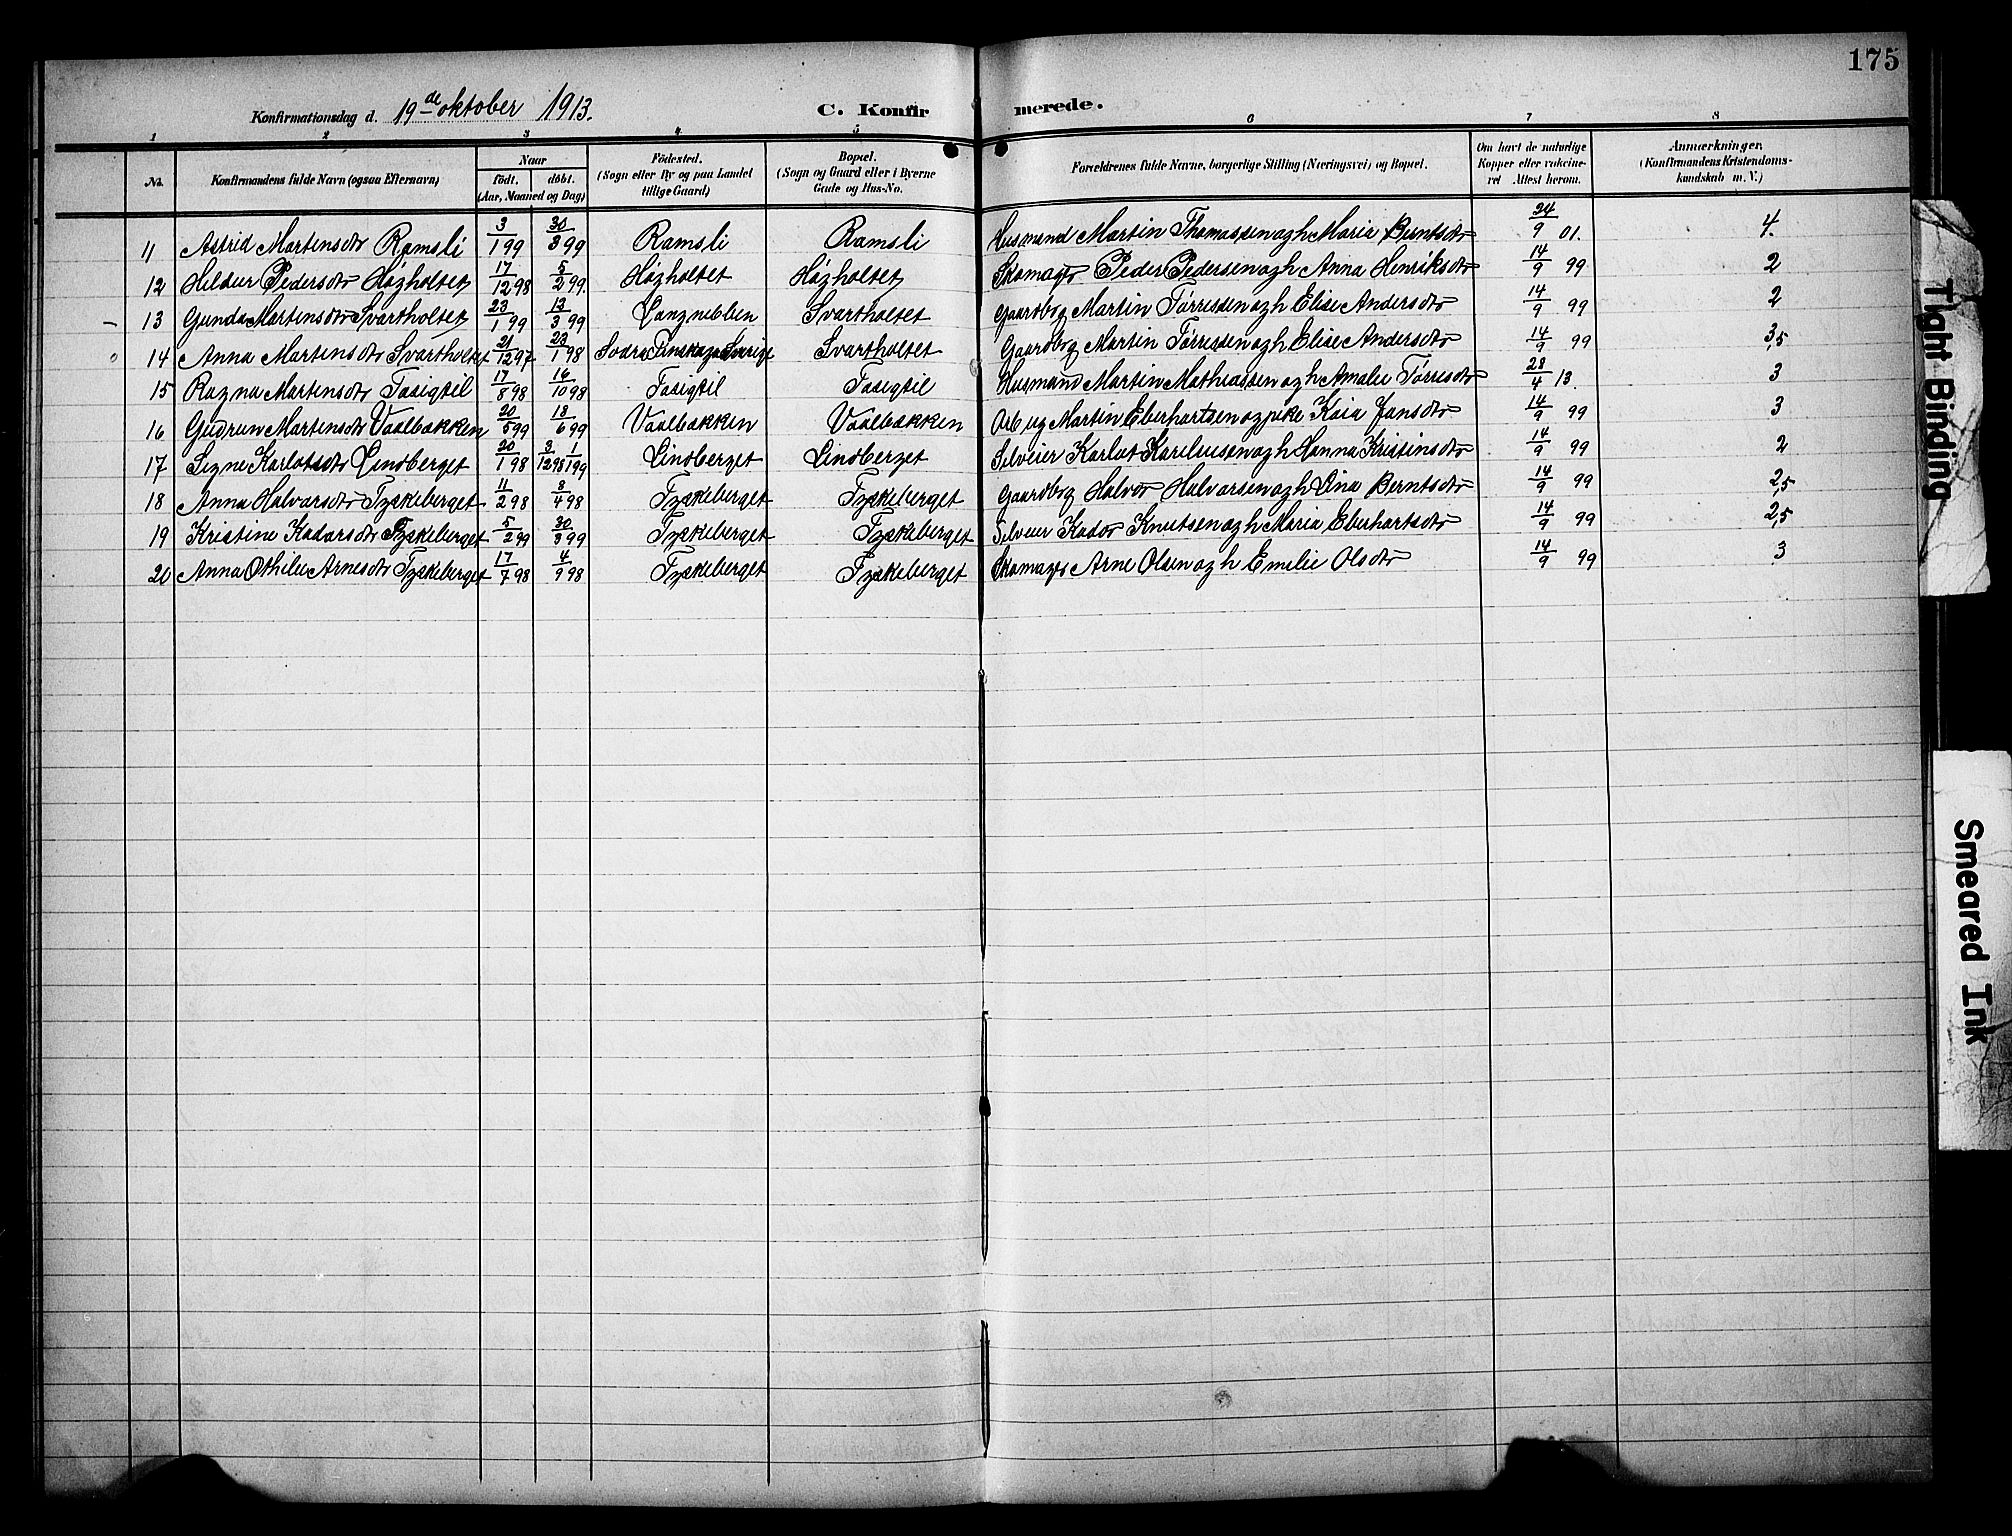 175
Konfirmationsdag d. 19de oktober 1913. C. Konfirmerede.
1 2 3 4 5 6 7 8
No. Konfirmandens fulde Navn (ogsaa Efternavn) Naar født. døbt. (Aar, Maaned og Dag) Fødested. (Sogn eller By og paa Landet tillige Gaard) Bopæl. (Sogn og Gaard eller i Byerne Gade og Hus-No.) Forældrenes fulde Navne, borgerlige Stilling (Næringsvei) og Bopæl. Om havt de naturlige Kopper eller vakcineret Attest herom. Anmærkninger. (Konfirmandens Kristendomskundskab m. V.)
11 Astrid Martensdtr Ramsli 3/1 99 30/3 99 Ramsli Ramsli Husmand Martin Thomassen og h Maria Berntsdtr 24/9 01. 4.
12 Hildur Pedersdtr Høgholtet 17/12 98 5/2 99. Høgholtet Høgholtet Skomager Peder Pedersen og h Anna Henriksdtr 14/9 99 2
13 Gunda Martensdtr Svartholtet 23/1 99 13/3 99 Langnebben Svartholtet Gaardbrg Martin Tørressen og h Elise Andersdtr 14/9 99 2
14 Anna Martensdtr Svartholtet 21/12 97 23/1 98 Södra Finskoga Sverige Svartholtet Gaardbrg Martin Tørressen og h Elise Andersdtr 14/9 99 3,5
15 Ragna Martensdtr Tasigtil 17/8 98 16/10 98 Tasigtil Tasigtil Husmand Martin Mathiassen og h Amalie Tørresdtr 28/4 13. 3
16 Gudrun Martensdtr Vaalbakken 20/5 99 18/6 99 Vaalbakken Vaalbakken Arb ug Martin Eberhartsen og pike Kaia Jansdtr 14/9 99 3
17 Signe Karlotsdtr Lindberget 20/1 98 3/12 98 1/1 99 Lindberget Lindberget Selveier Karlot Karelsusen og h Hanna Kristinsdtr 14/9 99 2
18 Anna Halvorsdtr Tyskeberget 11/2 98 8/4 98 Tyskeberget Tyskeberget Gaardbrg Halvor Halvorsen og h Lina Berntsdtr 14/9 99 2,5
19 Kristine Kadorsdtr Tyskeberget 5/2 99 30/3 99 Tyskeberget Tyskeberget Selveier Kador Knutsen og h Maria Eberhartsdtr 14/9 99 2,5
20 Anna Othilie Arnesdtr Tyskeberget 17/7 98 4/9 98 Tyskeberget Tyskeberget Skomager Arne Olsen og h Emilie Olsdtr 14/9 99 3
Tight Binding
Smeared Ink